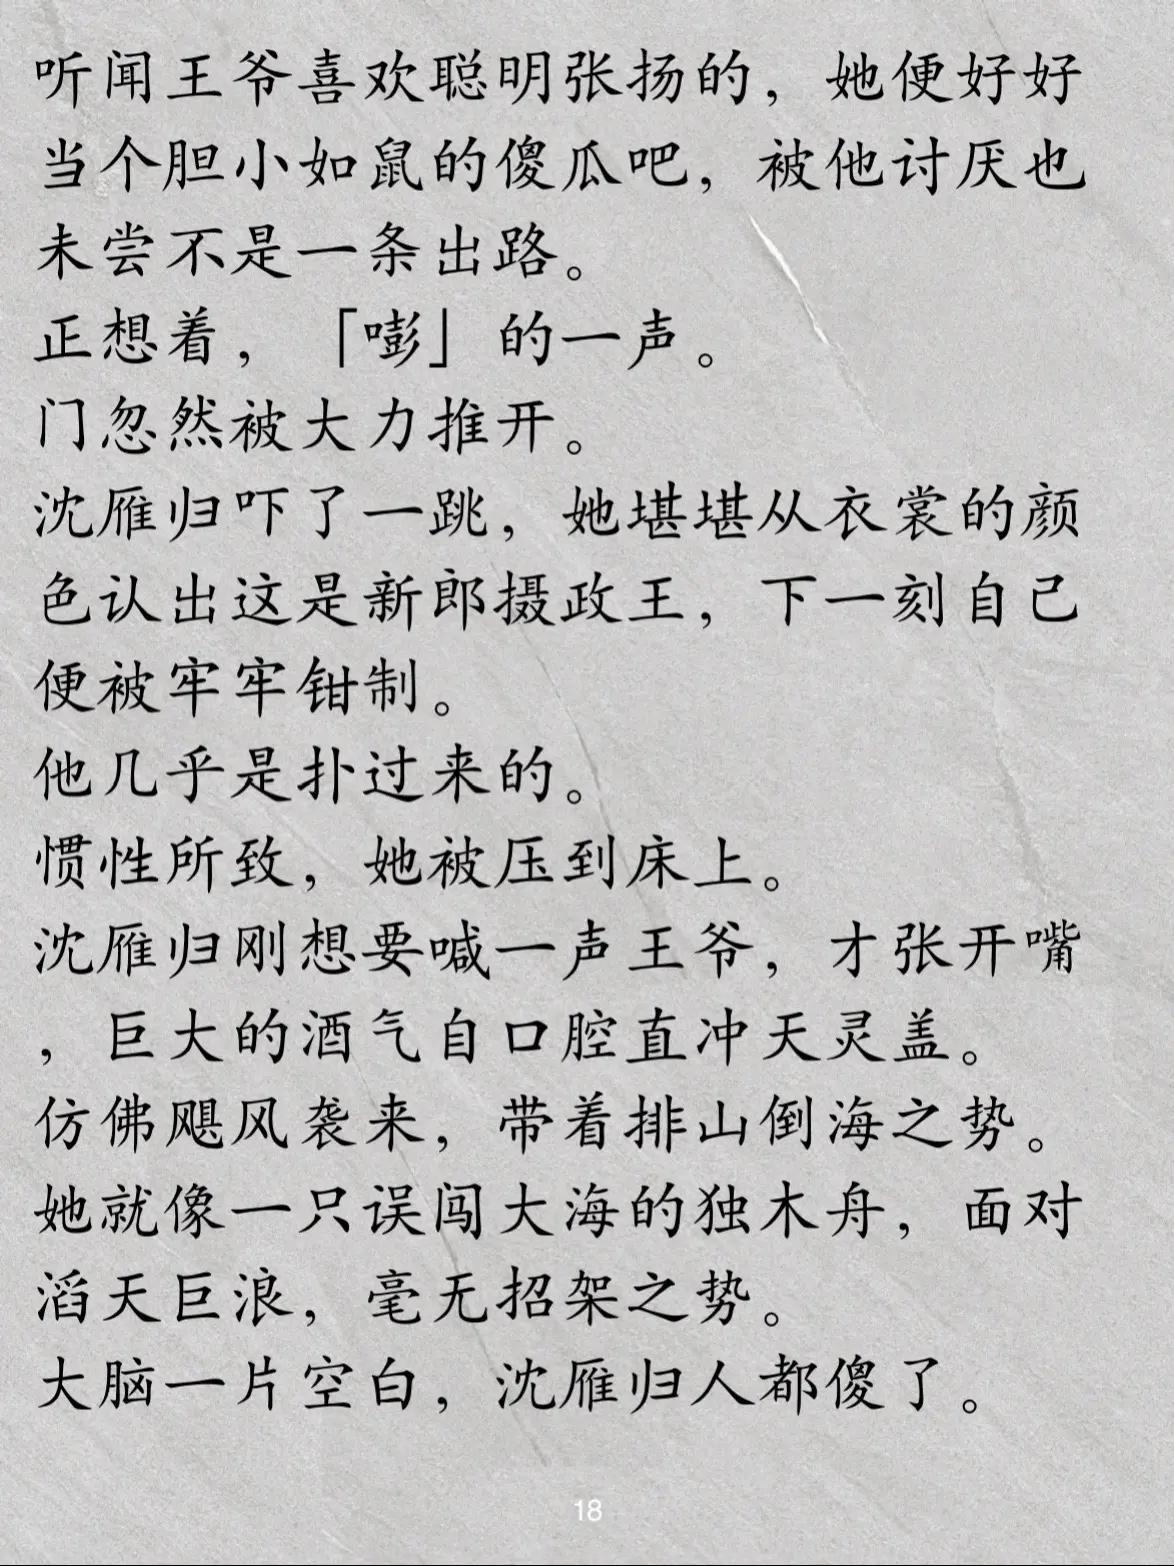 听闻王爷喜欢聪明张扬的，她便好好
当个胆小如鼠的傻瓜吧，被他讨厌也
未尝不是一条出路。
正想着，「嘭」的一声。
门忽然被大力推开。
沈雁归吓了一跳，她堪堪从衣裳的颜
色认出这是新郎摄政王，下一刻自己
便被牢牢钳制。
他几乎是扑过来的。
惯性所致，她被压到床上。
沈雁归刚想要喊一声王爷，才张开嘴
，巨大的酒气自口腔直冲天灵盖。
仿佛飓风袭来，带着排山倒海之势。
她就像一只误闯大海的独木舟，面对
滔天巨浪，毫无招架之势。
大脑一片空白，沈雁归人都傻了。
18